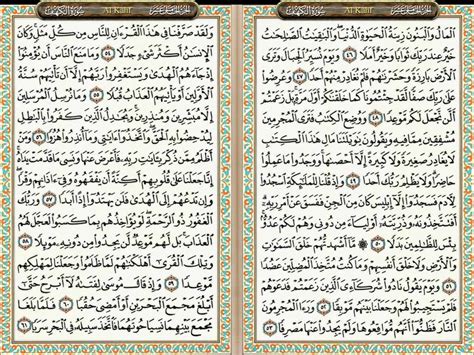 الجزء الخامس عشر
Al Kahf
سورة الكهف
الْمَالُ وَالْبَنُونَ زِينَةُ الْحَيَوٰةِ الدُّنْيَا وَالْبَٰقِيَٰتُ الصَّٰلِحَٰتُ
خَيْرٌ عِندَ رَبِّكَ ثَوَابًا وَخَيْرٌ أَمَلًا ٤٦ وَيَوْمَ نُسَيِّرُ الْجِبَالَ وَتَرَى
الْأَرْضَ بَارِزَةً وَحَشَرْنَٰهُمْ فَلَمْ نُغَادِرْ مِنْهُمْ أَحَدًا ٤٧ وَعُرِضُوا
عَلَىٰ رَبِّكَ صَفًّا لَّقَدْ جِئْتُمُونَا كَمَا خَلَقْنَٰكُمْ أَوَّلَ مَرَّةٍ بَلْ زَعَمْتُمْ
أَلَّن نَّجْعَلَ لَكُم مَّوْعِدًا ٤٨ وَوُضِعَ الْكِتَٰبُ فَتَرَى الْمُجْرِمِينَ
مُشْفِقِينَ مِمَّا فِيهِ وَيَقُولُونَ يَٰوَيْلَتَنَا مَالِ هَٰذَا الْكِتَٰبِ
لَا يُغَادِرُ صَغِيرَةً وَلَا كَبِيرَةً إِلَّا أَحْصَىٰهَا وَوَجَدُوا مَا عَمِلُوا
حَاضِرًا وَلَا يَظْلِمُ رَبُّكَ أَحَدًا ٤٩ وَإِذْ قُلْنَا لِلْمَلَٰٓئِكَةِ اسْجُدُوا
لِءَادَمَ فَسَجَدُوا إِلَّا إِبْلِيسَ كَانَ مِنَ الْجِنِّ فَفَسَقَ عَنْ أَمْرِ رَبِّهِ
أَفَتَتَّخِذُونَهُ وَذُرِّيَّتَهُ أَوْلِيَاءَ مِن دُونِي وَهُمْ لَكُمْ عَدُوٌّ
بِئْسَ لِلظَّٰلِمِينَ بَدَلًا ٥٠ ۞ مَّا أَشْهَدتُّهُمْ خَلْقَ السَّمَٰوَٰتِ
وَالْأَرْضِ وَلَا خَلْقَ أَنفُسِهِمْ وَمَا كُنتُ مُتَّخِذَ الْمُضِلِّينَ عَضُدًا
٥١ وَيَوْمَ يَقُولُ نَادُوا شُرَكَاءِيَ الَّذِينَ زَعَمْتُمْ فَدَعَوْهُمْ
فَلَمْ يَسْتَجِيبُوا لَهُمْ وَجَعَلْنَا بَيْنَهُم مَّوْبِقًا ٥٢ وَرَءَا الْمُجْرِمُونَ
النَّارَ فَظَنُّوا أَنَّهُم مُّوَاقِعُوهَا وَلَمْ يَجِدُوا عَنْهَا مَصْرِفًا ٥٣
الجزء الخامس عشر
Al Kahf
سورة الكهف
وَلَقَدْ صَرَّفْنَا فِي هَٰذَا الْقُرْءَانِ لِلنَّاسِ مِن كُلِّ مَثَلٍ وَكَانَ
الْإِنسَٰنُ أَكْثَرَ شَيْءٍ جَدَلًا ٥٤ وَمَا مَنَعَ النَّاسَ أَن يُؤْمِنُوا
إِذْ جَاءَهُمُ الْهُدَىٰ وَيَسْتَغْفِرُوا رَبَّهُمْ إِلَّا أَن تَأْتِيَهُمْ سُنَّةُ
الْأَوَّلِينَ أَوْ يَأْتِيَهُمُ الْعَذَابُ قُبُلًا ٥٥ وَمَا نُرْسِلُ الْمُرْسَلِينَ
إِلَّا مُبَشِّرِينَ وَمُنذِرِينَ وَيُجَٰدِلُ الَّذِينَ كَفَرُوا بِالْبَٰطِلِ
لِيُدْحِضُوا بِهِ الْحَقَّ وَاتَّخَذُوا ءَايَٰتِي وَمَا أُنذِرُوا هُزُوًا ٥٦ وَمَنْ
أَظْلَمُ مِمَّن ذُكِّرَ بِـَٔايَٰتِ رَبِّهِ فَأَعْرَضَ عَنْهَا وَنَسِيَ مَا قَدَّمَتْ يَدَاهُ
إِنَّا جَعَلْنَا عَلَىٰ قُلُوبِهِمْ أَكِنَّةً أَن يَفْقَهُوهُ وَفِي ءَاذَانِهِمْ وَقْرًا
وَإِن تَدْعُهُمْ إِلَى الْهُدَىٰ فَلَن يَهْتَدُوا إِذًا أَبَدًا ٥٧ وَرَبُّكَ
الْغَفُورُ ذُو الرَّحْمَةِ لَوْ يُؤَاخِذُهُم بِمَا كَسَبُوا لَعَجَّلَ لَهُمُ
الْعَذَابَ بَل لَّهُم مَّوْعِدٌ لَّن يَجِدُوا مِن دُونِهِ مَوْئِلًا ٥٨
وَتِلْكَ الْقُرَىٰ أَهْلَكْنَٰهُمْ لَمَّا ظَلَمُوا وَجَعَلْنَا لِمَهْلِكِهِم
مَّوْعِدًا ٥٩ وَإِذْ قَالَ مُوسَىٰ لِفَتَىٰهُ لَا أَبْرَحُ حَتَّىٰ
أَبْلُغَ مَجْمَعَ الْبَحْرَيْنِ أَوْ أَمْضِيَ حُقُبًا ٦٠ فَلَمَّا بَلَغَا
مَجْمَعَ بَيْنِهِمَا نَسِيَا حُوتَهُمَا فَاتَّخَذَ سَبِيلَهُ فِي الْبَحْرِ سَرَبًا ٦١